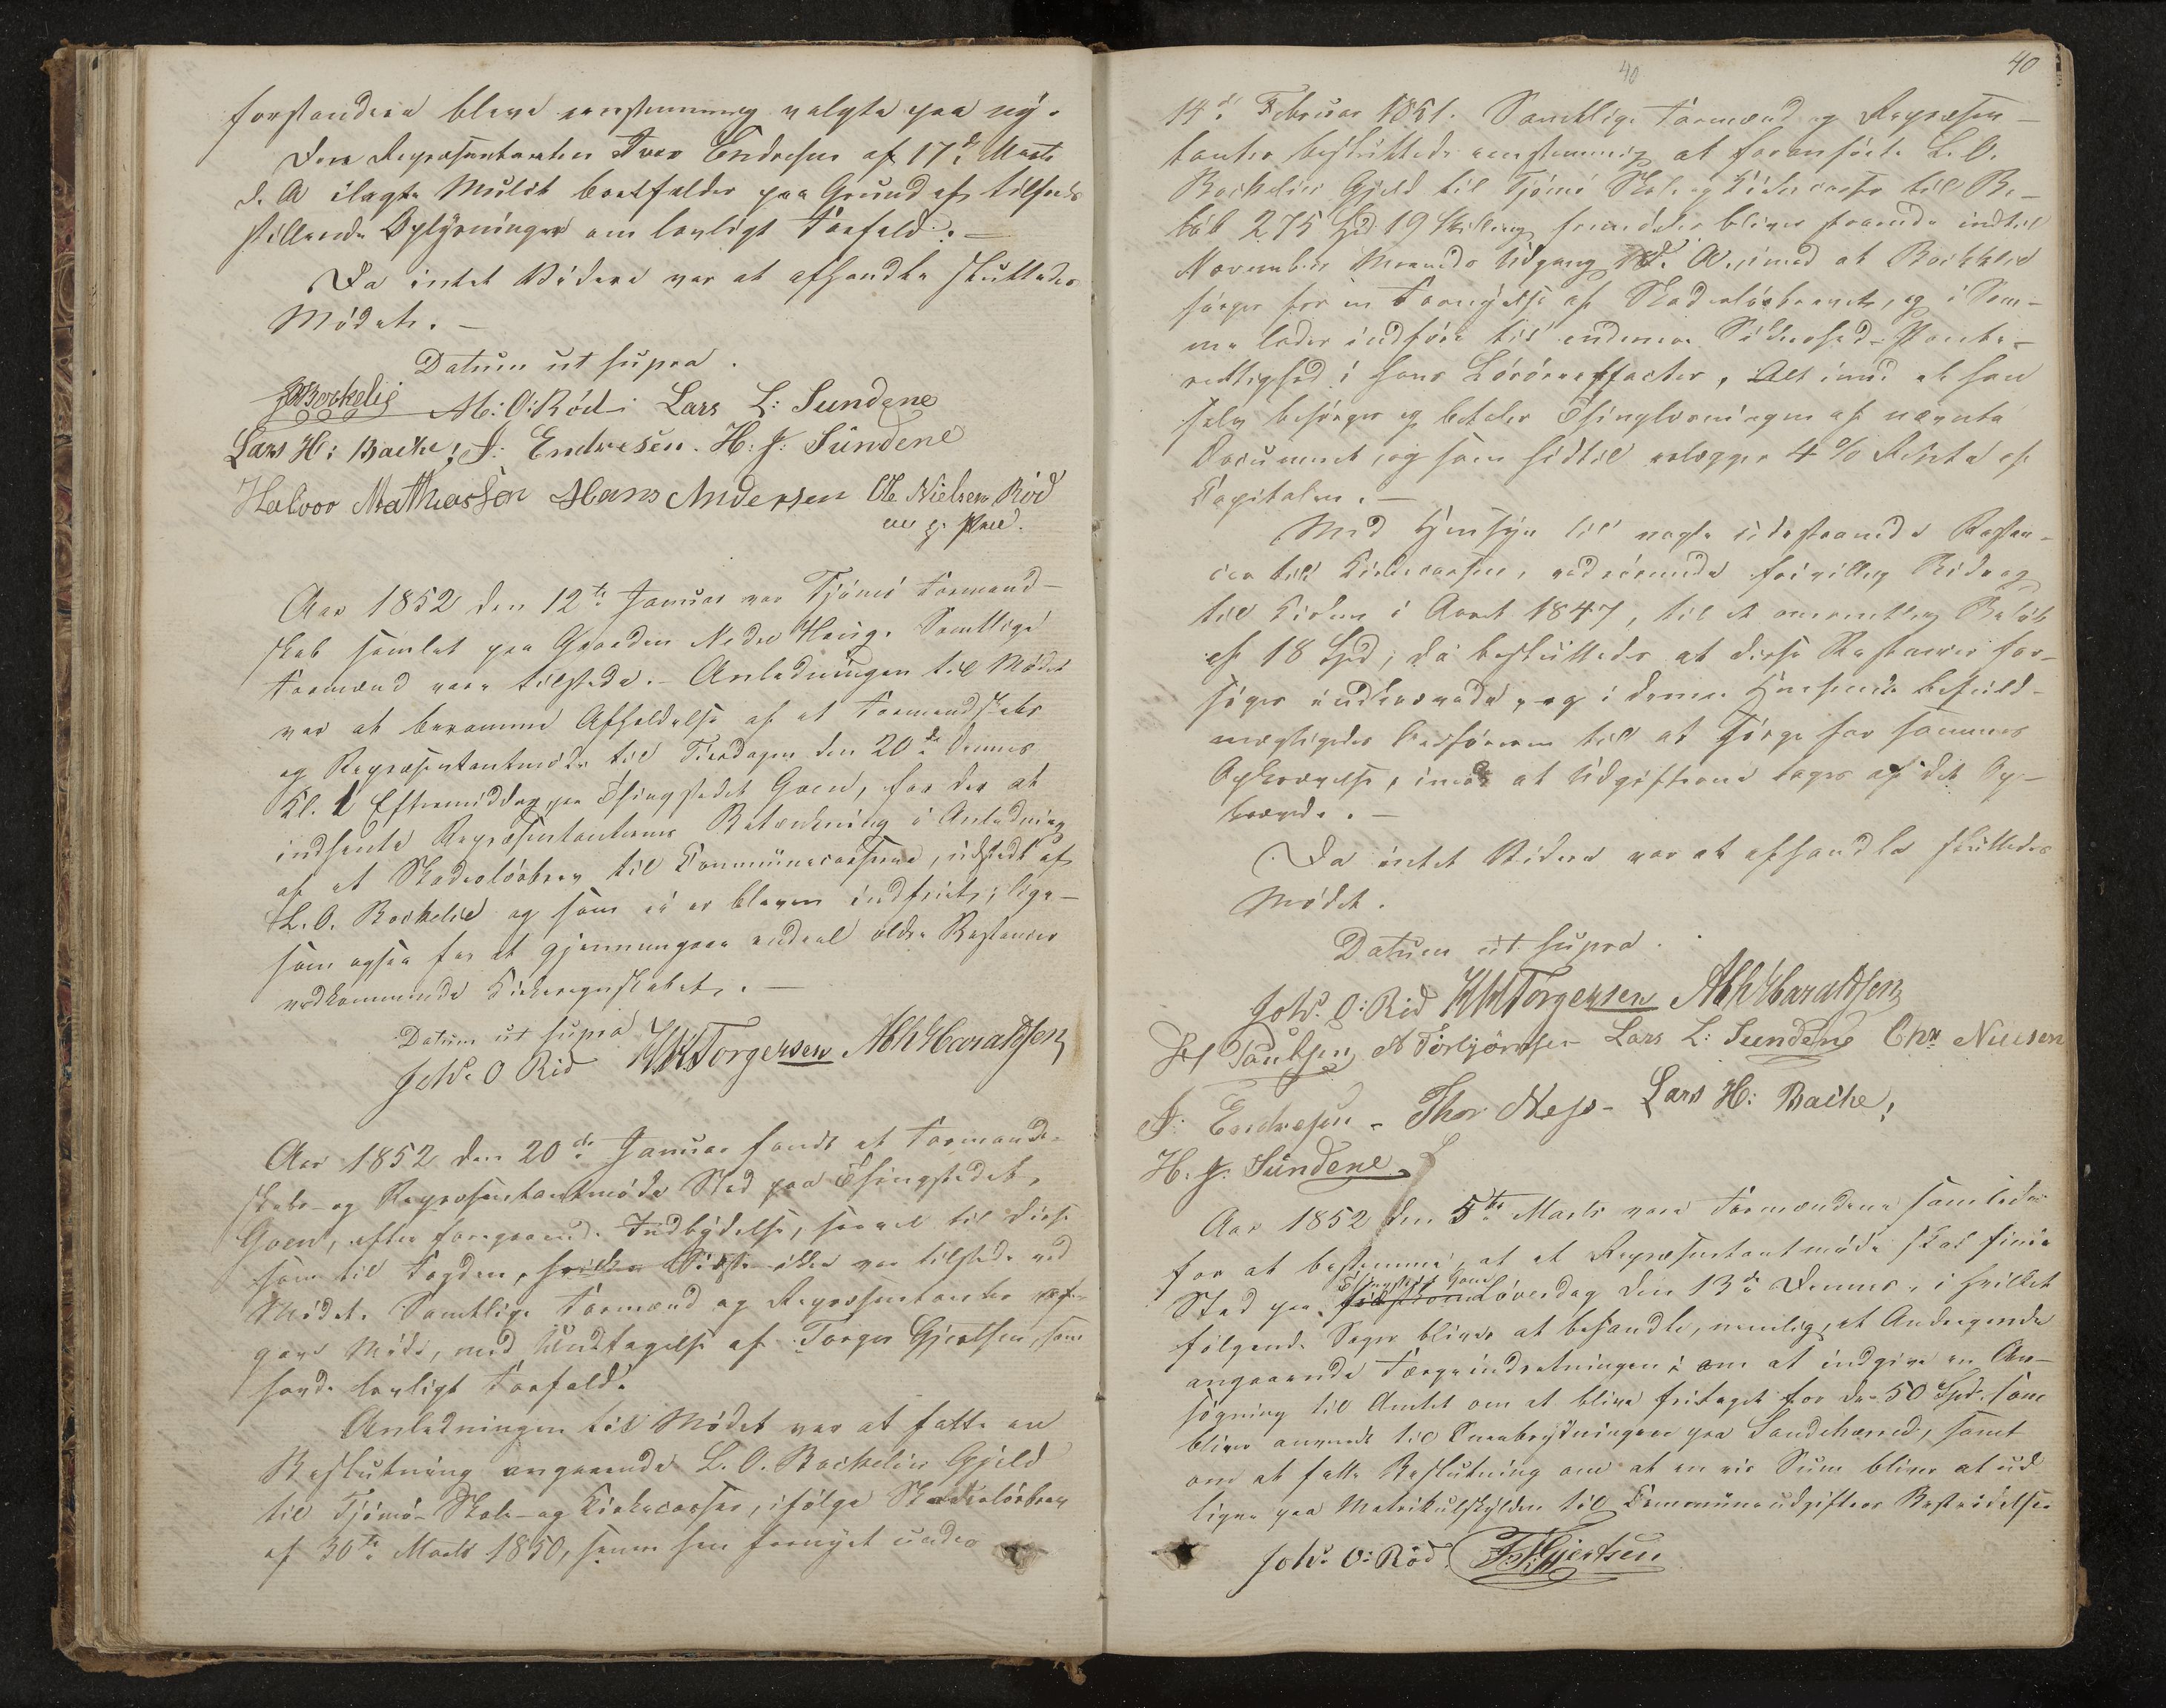 forstandere bleve eenstemmig valgte paa ny.
Den Repræsentanten Iver Endresen af 17de Marts
d. A ilagte Mulct bortfalder paa Grund af tilfreds
stillende Oplysninger om lovligt Forfald. –
Da intet Videre var at afhandle sluttedes
Mødet. –
Datum ut supra.
Bockelie M: O: Röd: Lars L: Sundene
Lars H: Backe; I: Endresen. H. J. Sündene
Halvor Mathiassen Hans Andersen Ole Nielsen Röd
m. p. Pen.
Aar 1852 den 12te Januar var Tjömö Formand-
skab samlet paa Gaarden Nedre Haug. Samtlige
Formænd vare tilstede. – Anledningen til Mødet
var at beramme Afholdelse af et Formandskabs
og Repræsentantmøde til Tirsdagen den 20de dennes
Kl. 1 Eftermiddag paa Thingstedet Goen, for der at
indhente Repræsentanternes Betænkning i Anledning
af et Skadesløsbrev til Communecasserne, udstedt af
L. O. Bockelie og som ei er bleven indfriet; lige-
som ogsaa for at gjennemgaae endeel ældre Restancer
vedkommende Kirkeregnskabet. –
Datum ut supra
Johs. O Röd HHTorgersen AbhHaraldsen
Aar 1852 den 20de Januar fandt et Formand-
skabs- og Repræsentantmøde Sted paa Thingstedet,
Goen, efter foregaaende Indbydelse, saavel til disse
som til Fogden, hvilken Sidste ikke var tilstede ved
Mødet. Samtlige Formænd og Repræsentanter af-
gave Møde, med Undtagelse af Torger Gjertsen, som
havde lovligt Forfald.
Anledningen til Mødet var at fatte en
Beslutning angaaende L. O. Bockelies Gjeld
til Tjömö Skole- og Kirkecasser, ifølge Skadesløsbrev
af 30te Marts 1850, samme sees fornyet under
40
40
14de Februar 1851. Samtlige Formænd og Repræsen-
tanter besluttede eenstemmig at foranførte L. O.
Bockelies Gjeld til Tjömö Skole- og Kirkecasse til Be-
løb 275 Spd 19 Skilling fremdeles bliver staaende indtil
November Maaneds Udgang d. A., imod at Bockelie
sørger for en Fornyelse af Skadesløsbrevet, og i Sam-
me lader indføre til end mere Sikkerhed – Pante-
rettighed i hans Løsøreeffecter, Alt imod at han
selv besørger og betaler Thinglæsningen af nævnte
Document, og som hidtil erlægger 4 % Rente af
Capitalen. –
Med Hensyn til nogle udestaaende Restan-
cer til Kirkecassen, vedrørende frivillig Bidrag
til Kirken i Aaret 1847, til et omtrentlig Beløb
af 18 Spd, da besluttedes at disse Restancer for-
søges inddrevede, og i denne Henseende befuld-
mægtigedes Ordføreren til at sørge for sammes
Opkrævelse, imod at Udgifterne tages af det Op-
krævede. –
Da intet Videre var at afhandle sluttedes
Mødet.
Datum ut supra.
Johs. O: Röd HHTorgersen AbhHaraldsen
Paulsen A Torbjörnsen Lars L: Sundene Chr Nielsen
I: Endresen – Thor Næss – Lars H: Backe;
H. J. Sündene
Aar 1852 den 5te Marts vare Formændene samlede
for at bestemme, at et Repræsentantmøde skal finde
Thingstedet Goen
Sted paa Løverdag den 13de dennes, i hvilket
følgende Sager bliver at behandle, nemlig, et Andragende
angaaende Færgeindretningen; om at indgive en An-
søgning til Amtet om at blive fritaget for de 50 Spd. som
bliver anvendt til Steenbrydningen paa Sandehæred, samt
om at fatte Beslutning om at en vis Sum bliver at ud
ligne paa Matrikulskylden til Communeudgifters Bestridelse
Johs. O: Röd. T. H. Gjertsen